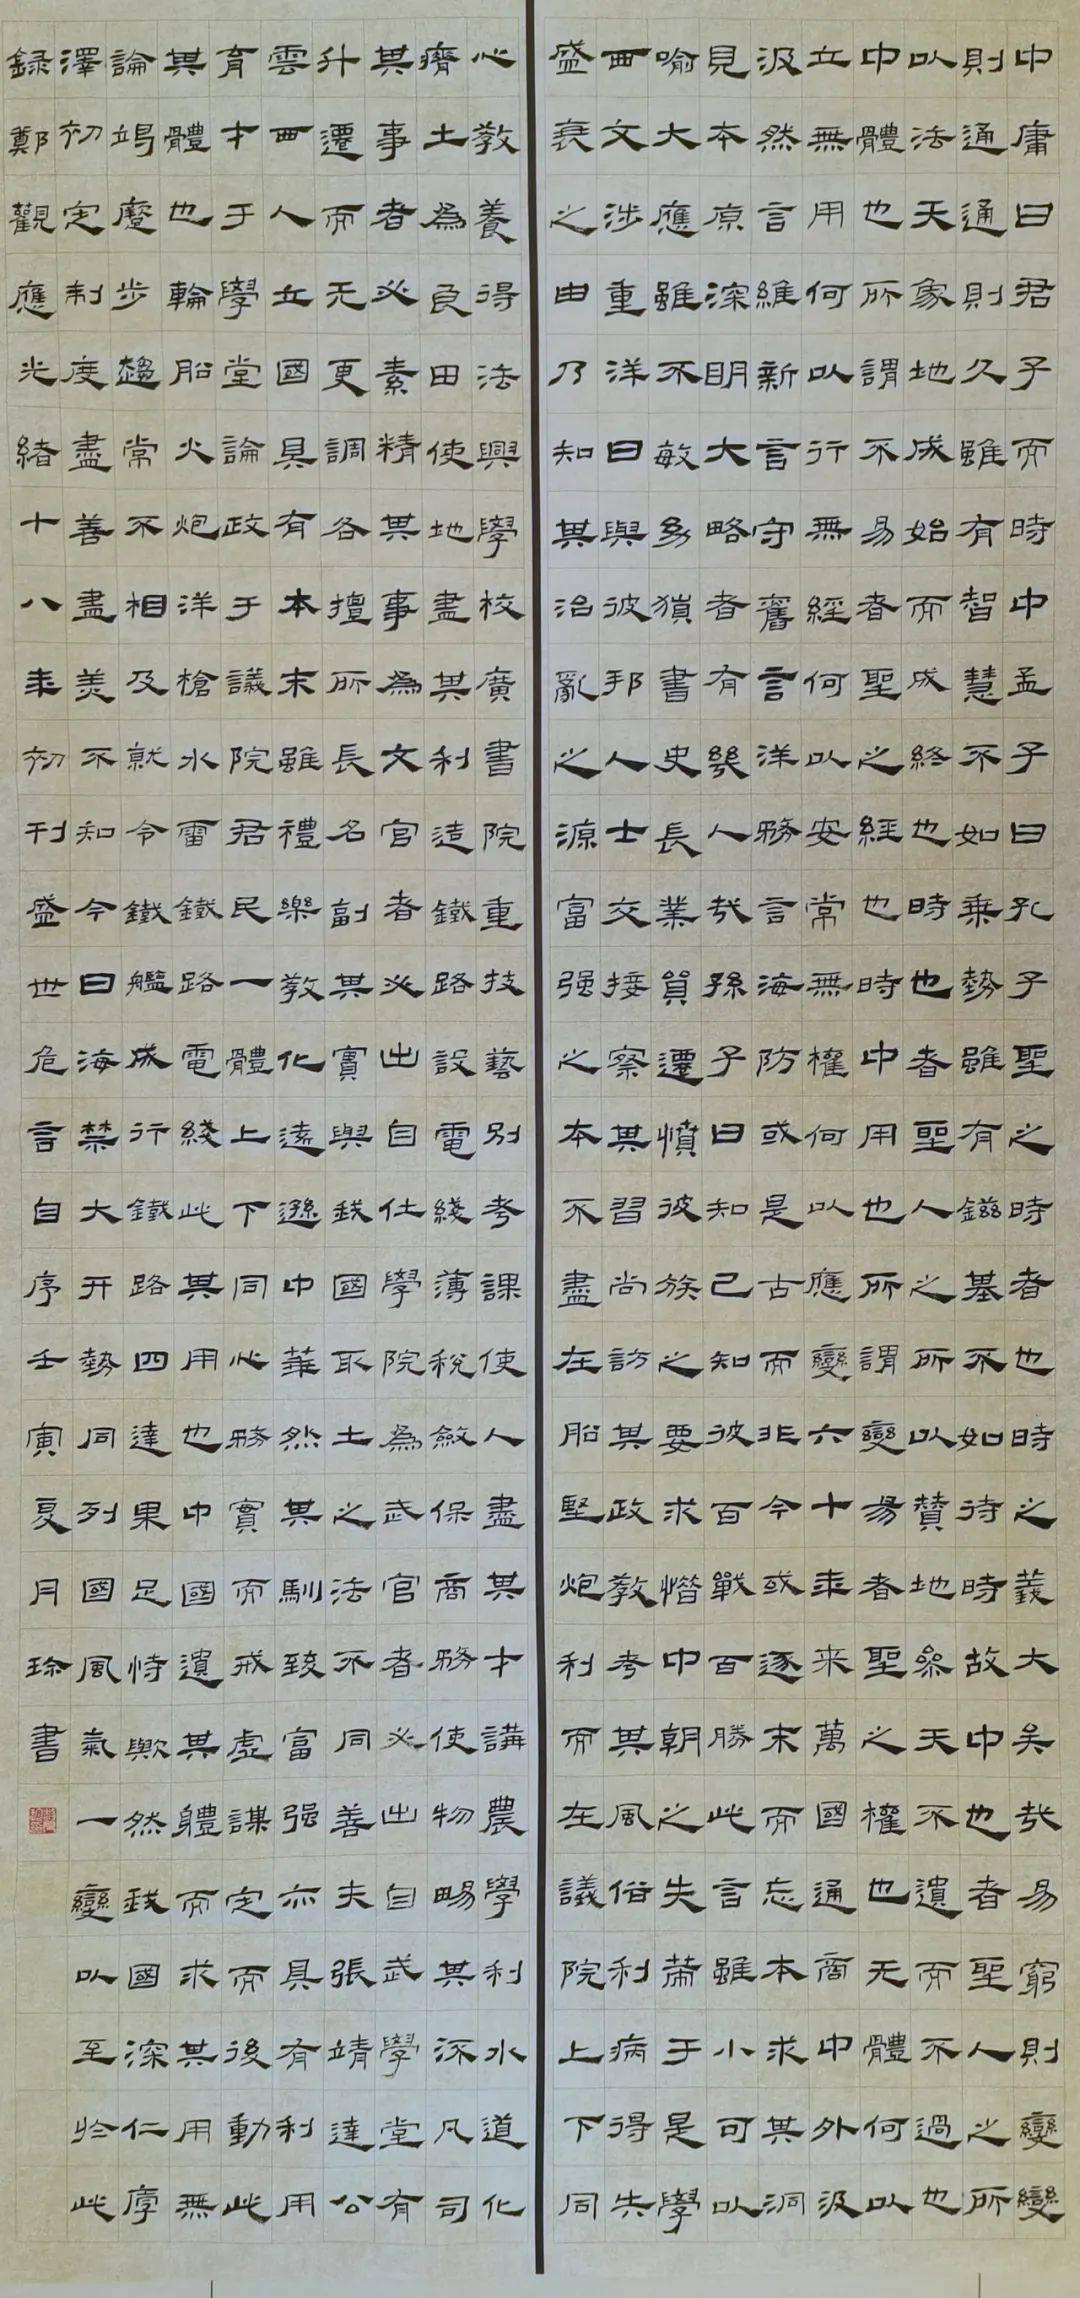 中庸曰君子而時中孟子曰孔子聖之時者也時之義大矣哉易窮則變變
則通通則久雖有智慧不如乘勢雖有鎡基不如待時故中也者聖人之所
以法天象地成始而成終也時也者聖人之所以贊地參天不遺而不過也
中體也所謂不易者聖之經也時中用也所謂變易者聖之權也无體何以
立無用何以行無經何以安常無權何以應變六十年来萬國通商中外汲
汲然言維新言守舊言洋務言海防或是古而非今或逐末而忘本求其洞
見本原深明大略者有幾人哉孫子曰知己知彼百戰百勝此言雖小可以
喻大應雖不敏幼獺書史長業貿遷憤彼族之要求憯中朝之失需于是學
西文涉重洋日與彼邦人士交接察其習尚訪其政教考其風俗利病得失
盛衰之由乃知其治亂之源富强之本不盡在船堅炮利而在議院上下同
心教養得法興學校廣書院重技藝別考課使人盡其才講農學利水道化
瘠土為良田使地盡其利造鐵路設電綫薄稅斂保商務使物暢其流凡司
其事者必素精其事為文官者必出自仕學院為武官者必出自武學堂有
升遷而无更調各擅所長名副其實與我國取士之法不同善夫張靖達公
雲西人立國具有本末雖禮樂教化遠遜中華然其馴致富强亦具有利用
育才于學堂論政于議院君民一體上下同心務實而戒虛謀定而後動此
其體也輪船火炮洋槍水雷鐵路電綫此其用也中國遺其體而求其用無
論竭蹷步趨常不相及就令鐵艦成行鐵路四達果足恃歟然我國深仁厚
澤初定制度盡善盡美不知今日海禁大开勢同列國風氣一變以至於此
録鄭觀應光緒十八年初刊盛世危言自序壬寅夏月琮書